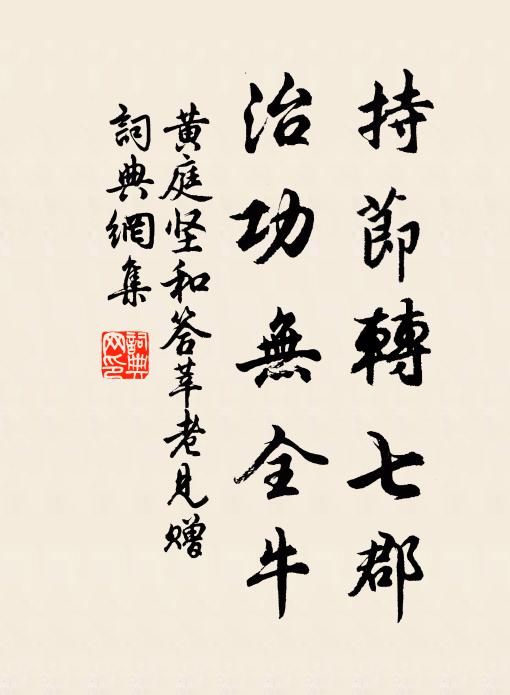 持節轉七郡
治功無全牛
黄庭坚和答莘老見赠
詞典網集
詞典
网印